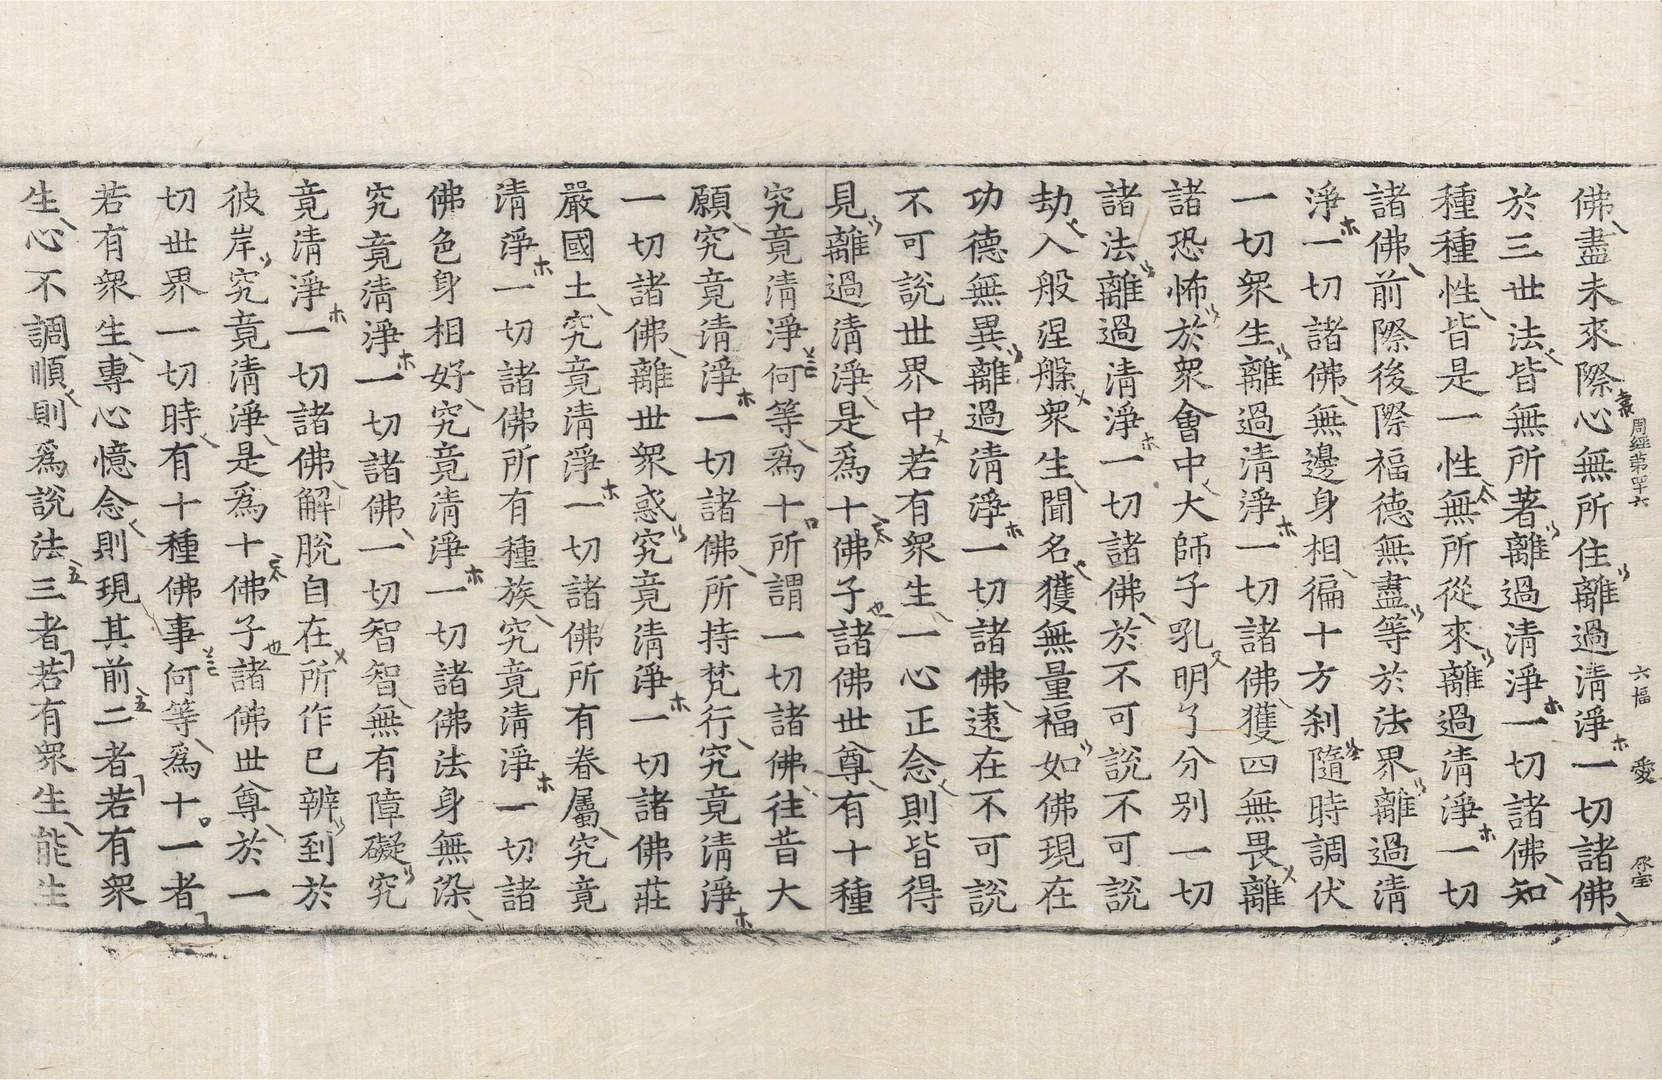 周經第罕六 六幅 愛
佛盡未來際心無所住離過清淨一切諸佛
於三世法皆無所著離過清淨一切諸佛知
種種性皆是一性無所從來離過清淨一切
諸佛前際後際福德無盡等於法界離過清
淨一切諸佛無邊身相徧十方刹隨時調伏
一切衆生離過清淨一切諸佛獲四無畏離
諸恐怖於衆會中大師子吼明了分別一切
諸法離過清淨一切諸佛於不可說不可說
劫入般涅槃衆生聞名獲無量福如佛現在
功德無異離過清淨一切諸佛遠在不可說
不可說世界中若有衆生一心正念則皆得
見離過清淨是爲十佛子諸佛世尊有十種
究竟清淨何等爲十所謂一切諸佛往昔大
願究竟清淨一切諸佛所持梵行究竟清淨
一切諸佛離世衆惑究竟清淨一切諸佛莊
嚴國土究竟清淨一切諸佛所有眷屬究竟
清淨一切諸佛所有種族究竟清淨一切諸
佛色身相好究竟清淨一切諸佛法身無染
究竟清淨一切諸佛一切智智無有障礙究
竟清淨一切諸佛解脫自在所作已辨到於
彼岸究竟清淨是爲十佛子諸佛世尊於一
切世界一切時有十種佛事何等爲十一者
若有衆生專心憶念則現其前二者若有衆
生心不調順則爲說法三者若有衆生能生